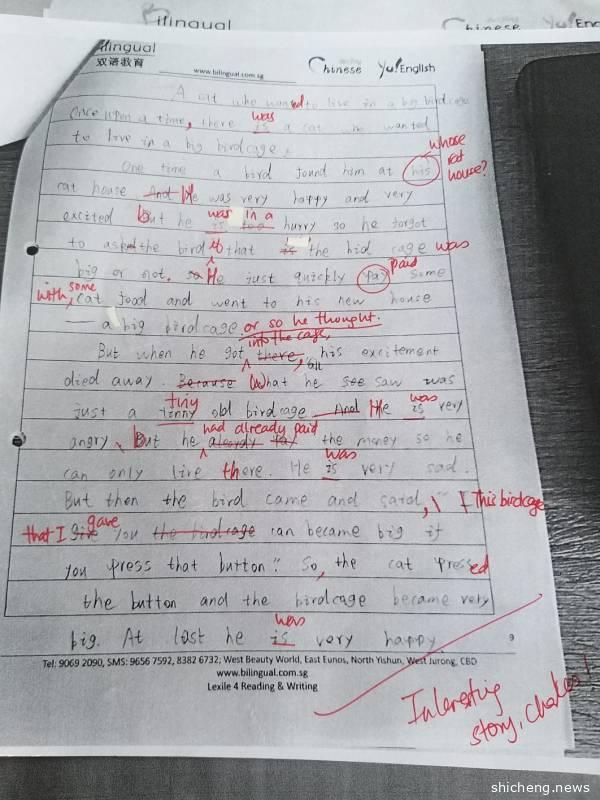 ilingual
Chinese Yu! English
ilingual
双语教育
www.bilingual.com.sg
Chinese Yu! English
A cat who wanted to live in a big birdcage
Once upon a time, there was is a cat who wanted
to love in a big birdcage.
One time a bird found him at his whose cat house?
cat house And He was very happy and very
excited but he was in a is too hurry so he forgot
to ask the bird if that is the bid cage was
big or not. so He just quickly pay paid some
with some cat food and went to his new house
a big birdcage. or so he thought.
But when he got into the cage, there, his excitement
died away. Because What he see saw was
just a tiny tinny old birdcage And He was is very
angry, But he had already paid aleardy pay the money so he
can only live there. He was is very sad.
But then the bird came and said, " This birdcage
that I gave give you the birdcage can became big if
you press that button." So, the cat pressed
the button and the birdcage became very
big. At last he was is very happy
9
Tel: 9069 2090, SMS: 9656 7592, 8382 6732; West Beauty World, East Eunos, North Yishun, West Jurong, CBD
www.bilingual.com.sg
Lexile 4 Reading & Writing
Interesting
story,
shicheng.news